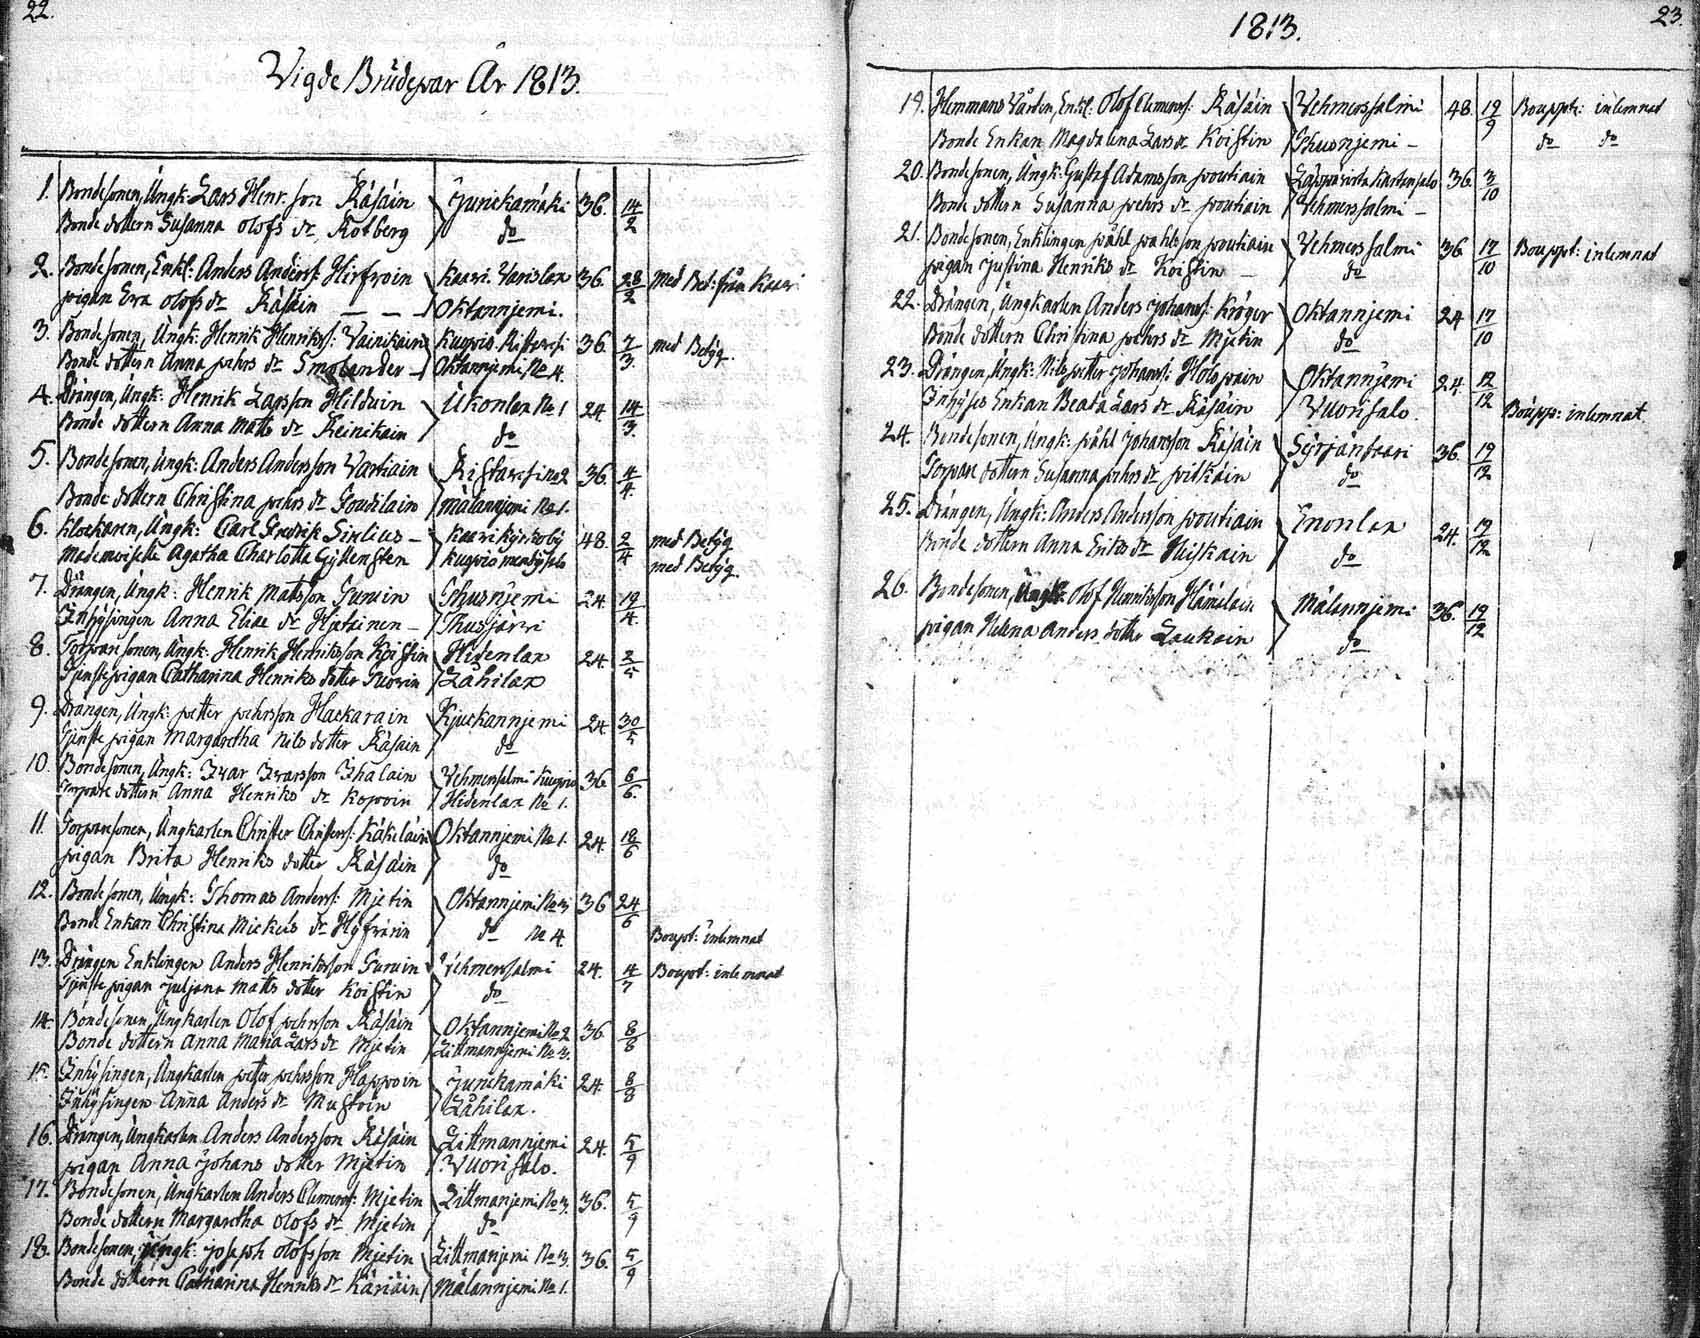 22.
Vigde Brudepar År 1813.
1. Bondesonen, Ungk: Lars Henr. son Räsäin Jurickamäki 36. 14/2
Bonde dottern Susanna Olofs dr Kotberg do
2. Bondesonen, Enkl: Anders Anderss: Hirfwoin Kaavi. Vanislax 36. 28/2 Med Bet: från Kaavi
pigan Eva Olofs dr Räsäin Oktannjemi.
3. Bondesonen, Ungk: Henrik Henrikss: Vainikain Kuopio. Ristavesi 36. 7/3. med Betyg.
Bonde dottern Anna Pehrs dr Smolander Oktannjemi No 4.
4. Drängen, Ungk: Henrik Larsson Hilduin Ukonlax No 1 24. 14/3.
Bonde dottern Anna Matts dr Reinikain do
5. Bondesonen, Ungk: Anders Andersson Vartiain Ristavesi No 2 36. 4/4.
Bonde dottern Christina Pehrs dr Mälannjemi No 1.
6. Klockaren, Ungk: Carl Fredrik Sirelius Kaavi Kyrkoby 48. 2/4 med Betyg
Mademoiselle Agatha Charlotta Gyllensten Kuopio med Betyg.
7. Drängen, Ungk: Henrik Matsson Turuin Thusnjemi 24 19/4.
Inhysingen Anna Eliae dr Thusjärvi
8. Torparesonen, Ungk: Henrik Henriksson Koistin Hidenlax 24. 2/5
Tjenstepigan Catharina Henriks dotter Tuovin Lähilax
9. Drängen, Ungk: Petter Pehrsson Hackarain Kjuckannjemi 24. 30/5
Tjenste pigan Margaretha Nils dotter Räsäin do
10. Bondesonen, Ungk: Ivar Ivarsson Ihalain Vehmersalmi Kuopio 36 6/6.
Torpare dottern Anna Henriks dr Kopoin Hidenlax No 1.
11. Torparesonen, Ungkarlen Christer Christerss: Käkiläin Oktannjemi No 1. 24. 18/6
pigan Brita Henriks dotter Räsäin do
12. Bondesonen, Ungk: Thomas Anderss: Mjetin Oktannjemi No 3 36 24/6
Bonde Enkan Christina Mickels dr do No 4. Boupt: inlemnat
13. Drängen Enklingen Anders Henriksson Turuin Vehmersalmi 24. 4/7 Boupt: inlemnat
Tjenste pigan Juliana Matts dotter Koistin do
14. Bondesonen, Ungkarlen Olof Pehrsson Räsäin Oktannjemi No 2 36 8/8
Bonde dottern Anna Maria Lars dr Mjetin Littmannjemi No 3.
15. Inhysingen, Ungkarlen Petter Pehrsson Happoin Jurickamäki 24. 8/8
Inhysingen Anna Anders dr Mustoin Lähilax.
16. Drängen, Ungkarlen Anders Andersson Räsäin Littmannjemi 24. 5/9
pigan Anna Johans dotter Mjetin Vuorisalo.
17. Bondesonen, Ungkarlen Anders Clemenss: Mjetin Littmanjemi No 3. 36. 5/9
Bonde dottern Margaretha Olofs dr Mjetin do
18. Bondesonen, Ungk: Joseph Olofsson Mjetin Littmanjemi No 3. 36. 5/9
Bonde dottern Catharina Henriks dr Käriäin Mälannjemi No 1.
1813. 23.
19. Hemmans Vården, Enkl: Olof Clemenss: Räsäin Vehmerssalmi 48. 19/9 Bouppt: inlemnat
Bonde Enkan Magdalena Lars dr Koistin Thusnjemi do do
20. Bondesonen, Ungk: Gustaf Adamsson Poutiain 36. 3/10
Bonde dottern Susanna Pehrs dr Poutiain Vehmerssalmi
21. Bondesonen, Enklingen Påhl Pahlsson Poutiain Vehmerssalmi 36 17/10 Bouppt: inlemnat
pigan Justina Henriks dr Koistin do
22. Drängen, Ungkarlen Anders Johanss: Kröger Oktannjemi 24 17/10
Bonde dottern Christina Pehrs dr Mjetin do
23. Drängen, Ungk: Nils Petter Johanss: Holopain Oktannjemi 24. 12/12
Inhyses Enkan Beata Lars dr Räsäin Vuorisalo. Boupp: inlemnat.
24. Bondesonen, Ungk: Påhl Johansson Räsäin Syrjänsaari 36. 19/12
Torpare dottern Susanna Pehrs dr Pitkäin do
25. Drängen, Ungk: Anders Andersson Poutiain Enonlax 24. 19/12
Bonde dottern Anna Eriks dr Hiskain do
26. Bondesonen, Ungk: Olof Henriksson Hämäläin Mälannjemi 36. 19/12
pigan Helena Anders dotter Laukain do